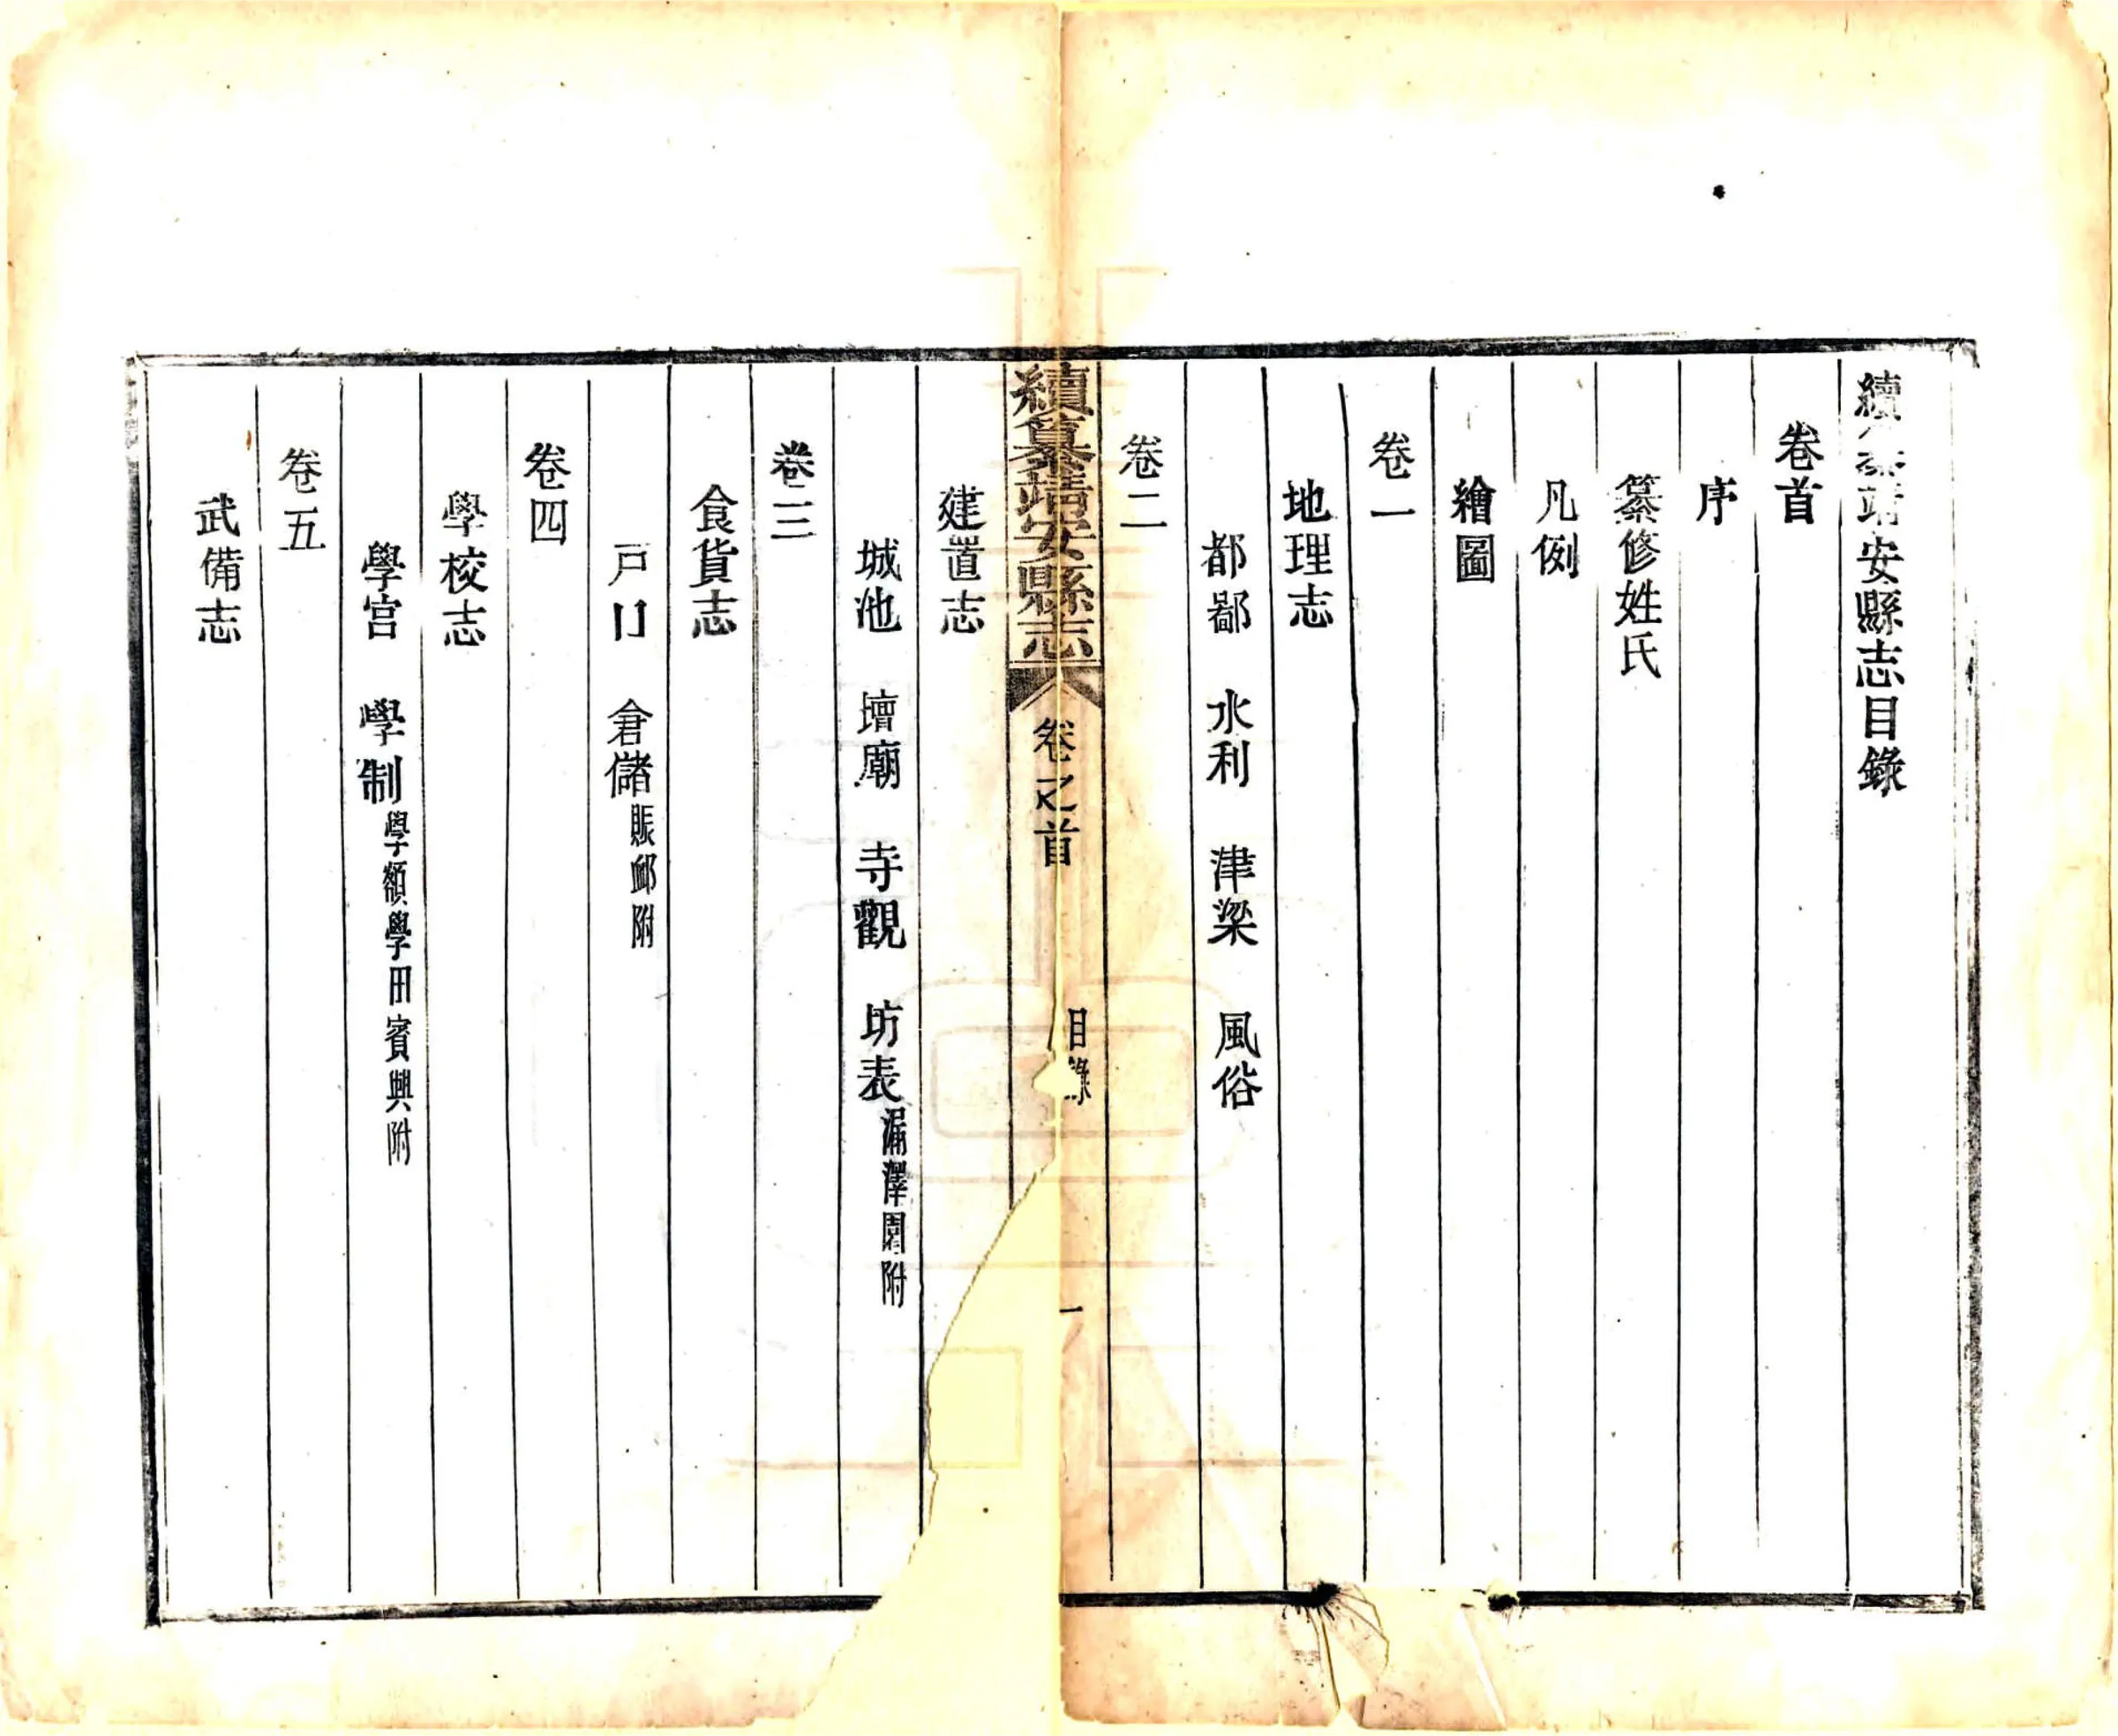 續纂靖安縣志目錄
卷首
序
纂修姓氏
凡例
繪圖
卷一
地理志
都鄙 水利 津梁 風俗
卷二
續纂靖安縣志 卷之首 目錄 一
建置志
城池 壇廟 寺觀 坊表漏澤園附
卷三
食貨志
戸口 倉儲賑卹附
卷四
學校志
學宮 學制學額學田賓興附
卷五
武備志